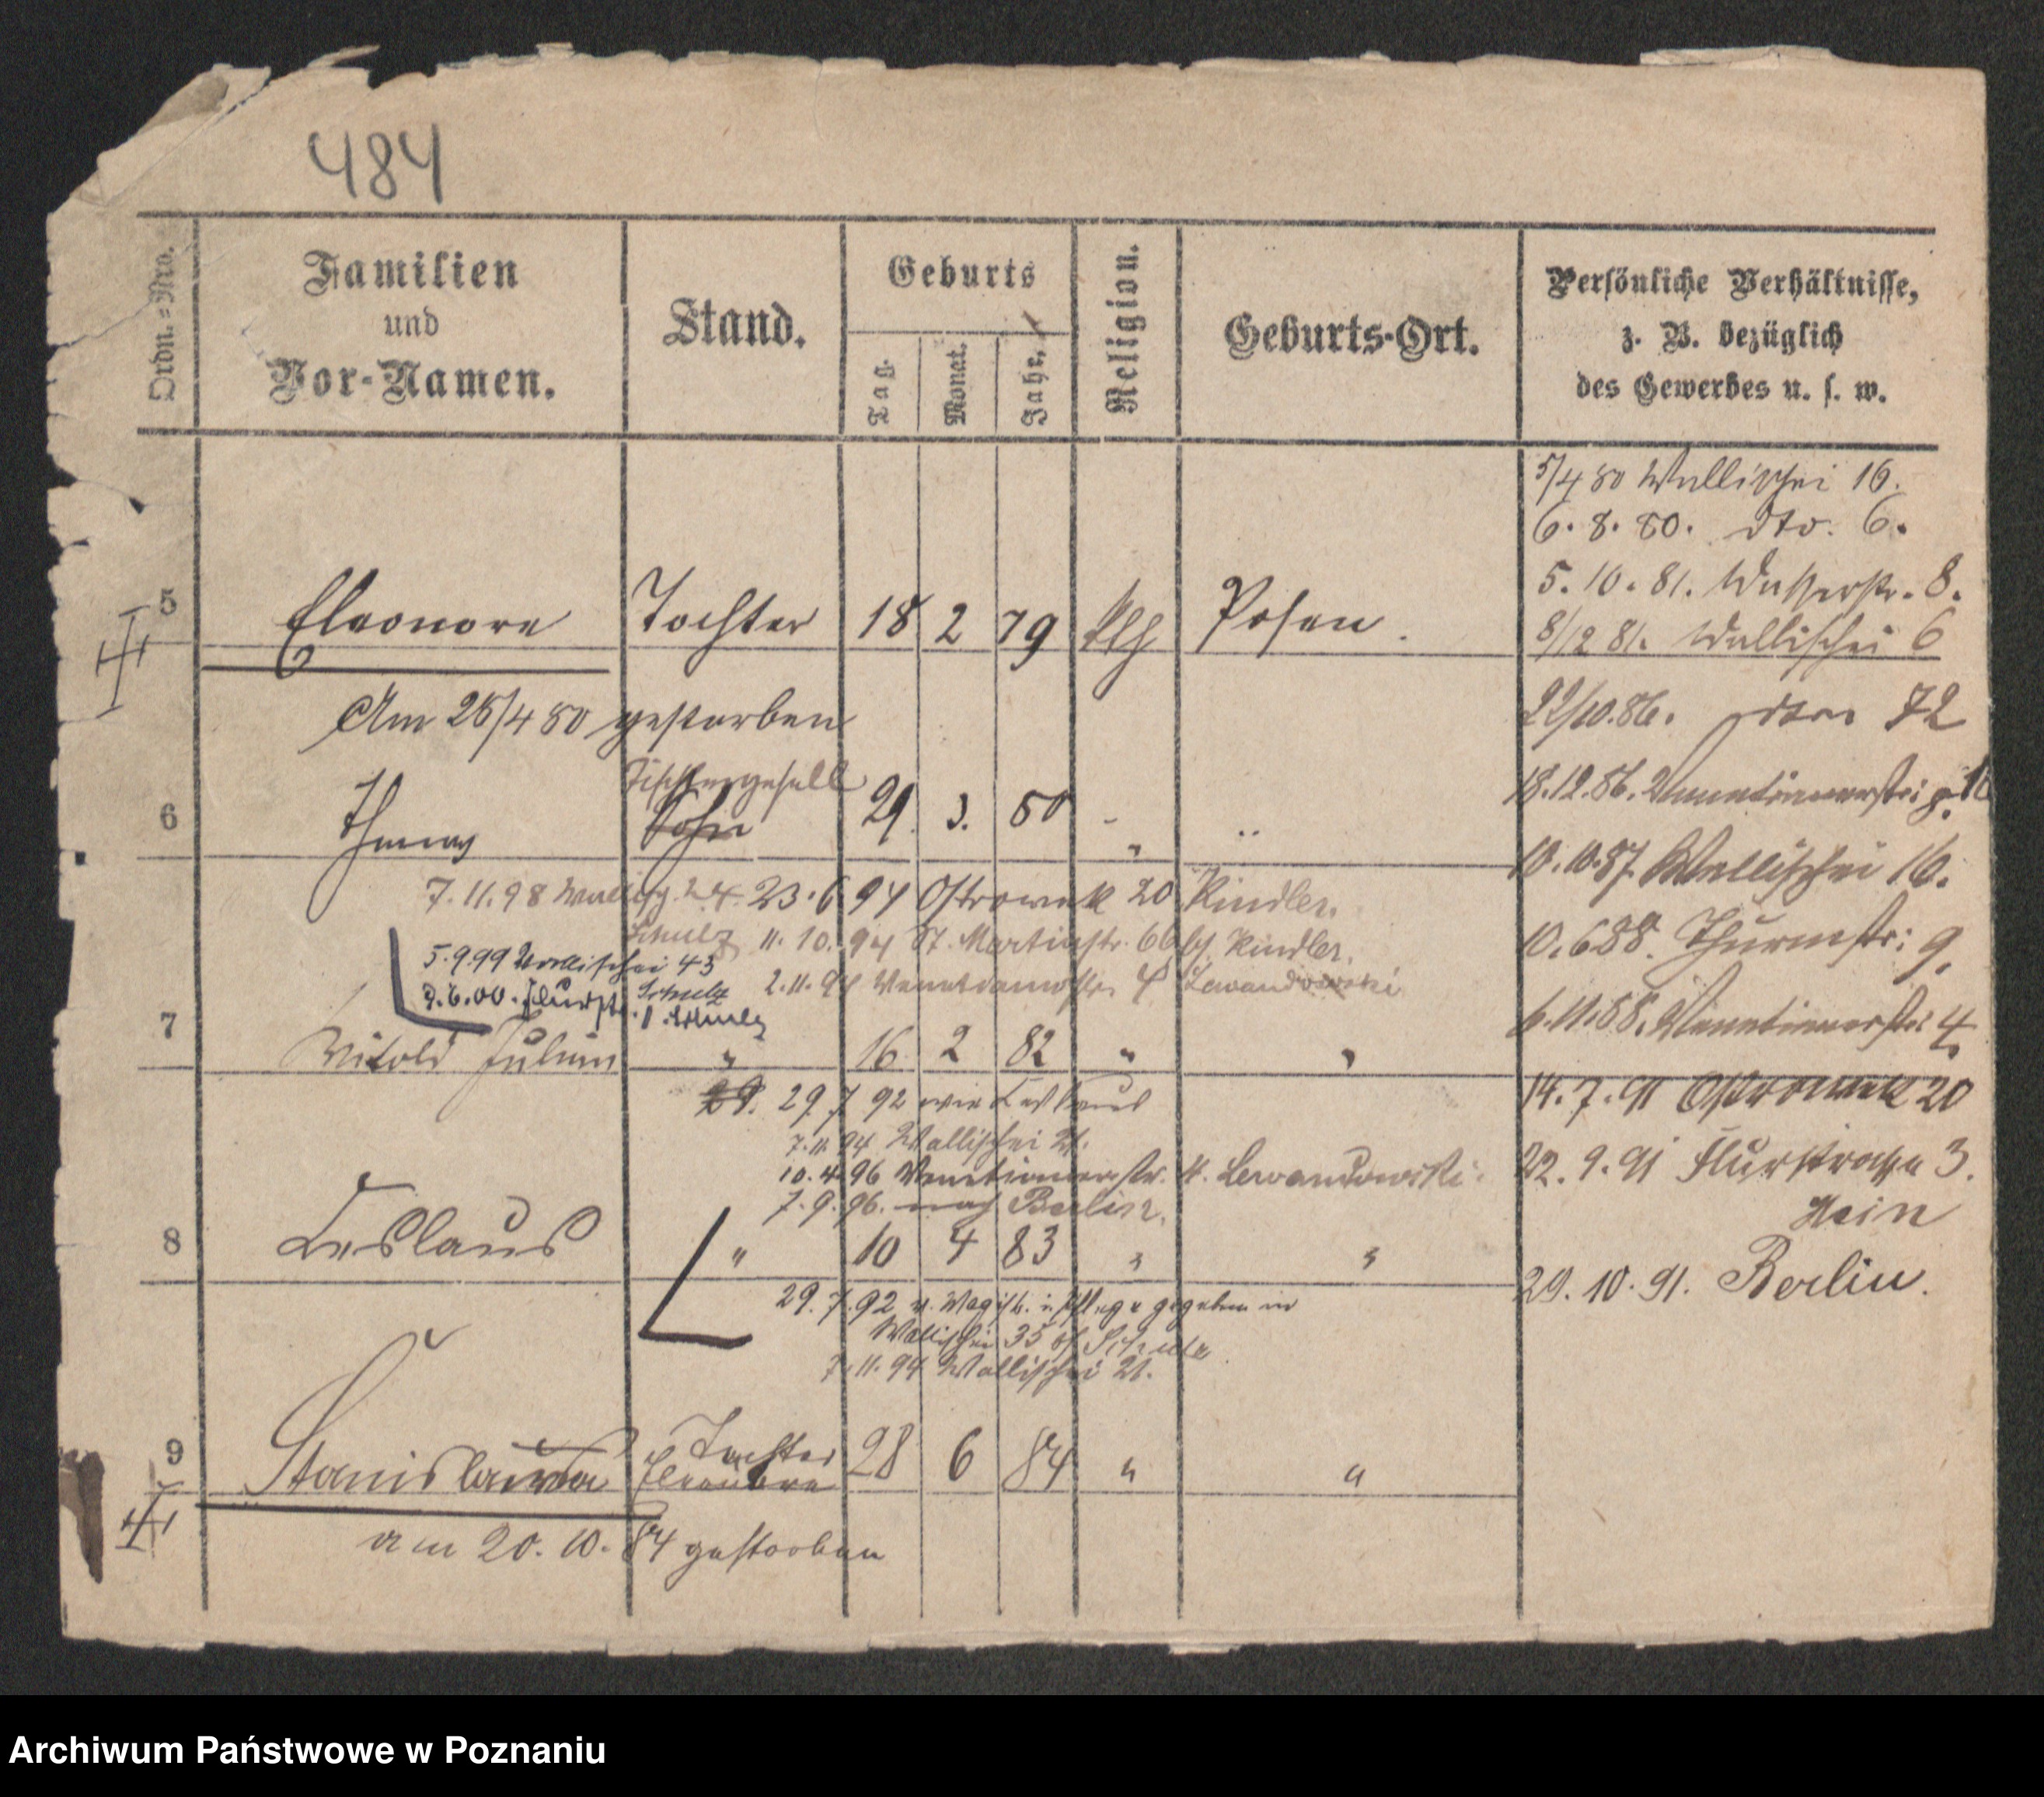 484
Ordn.-Nro.
Familien
und
Vor-Namen.
Stand.
Geburts
Tag.
Monat.
Jahr.
Religion.
Geburts-Ort.
Persönliche Verhältnisse,
z. B. bezüglich
des Gewerbes u. s. w.
5/4 80 Wallischei 16.
6. 8. 80. dto. 6.
5. 10. 81. Wasserstr. 8.
5 Eleonore Tochter 18 2 79 Posen.
8/12 81. Wallischei 6
Am 26/4 80 gestorben
22/10. 86. 72
Tischlergesell
18. 12. 86. Venetianerstr:
6 Sohn 29. 3. 80 "
10. 10. 87. Wallischei 16.
7. 11. 98 24. 23. 6 94 Ostrowek 20 Kindler.
Schulz 11. 10. 94 St. Martinstr. 66 bei Kindler.
10. 6 88. Thurmstr: 9.
5. 9. 99 Wallischei 43 Schulz
2. 11. 94 Venetianerstr. 4 Lewandowski
Flurstr. 1. Schulz
6. 11. 88. Venetianerstr: 4
7 Witold Julian " 16. 2 82 " "
29. 29. 7 92 wie Ceslaus
14. 7. 91 Ostrowek 20
7. 11. 94 Wallischei 21.
10. 4. 96 Venetianerstr. 4. Lewandowski.
22. 9. 91 Flurstrasse 3.
7. 9. 96. nach Berlin.
Hein
8 Ceslaus " 10 4 83 " "
29. 10. 91. Berlin.
29. 7. 92 v. Magist. in Pflege gegeben
Wallischei 35 bei Schulz
7. 11. 94 Wallischei 21.
9 Stanislawa Tochter 28 6 84 " "
Eleonora
am 20. 10. 84 gestorben
Archiwum Państwowe w Poznaniu